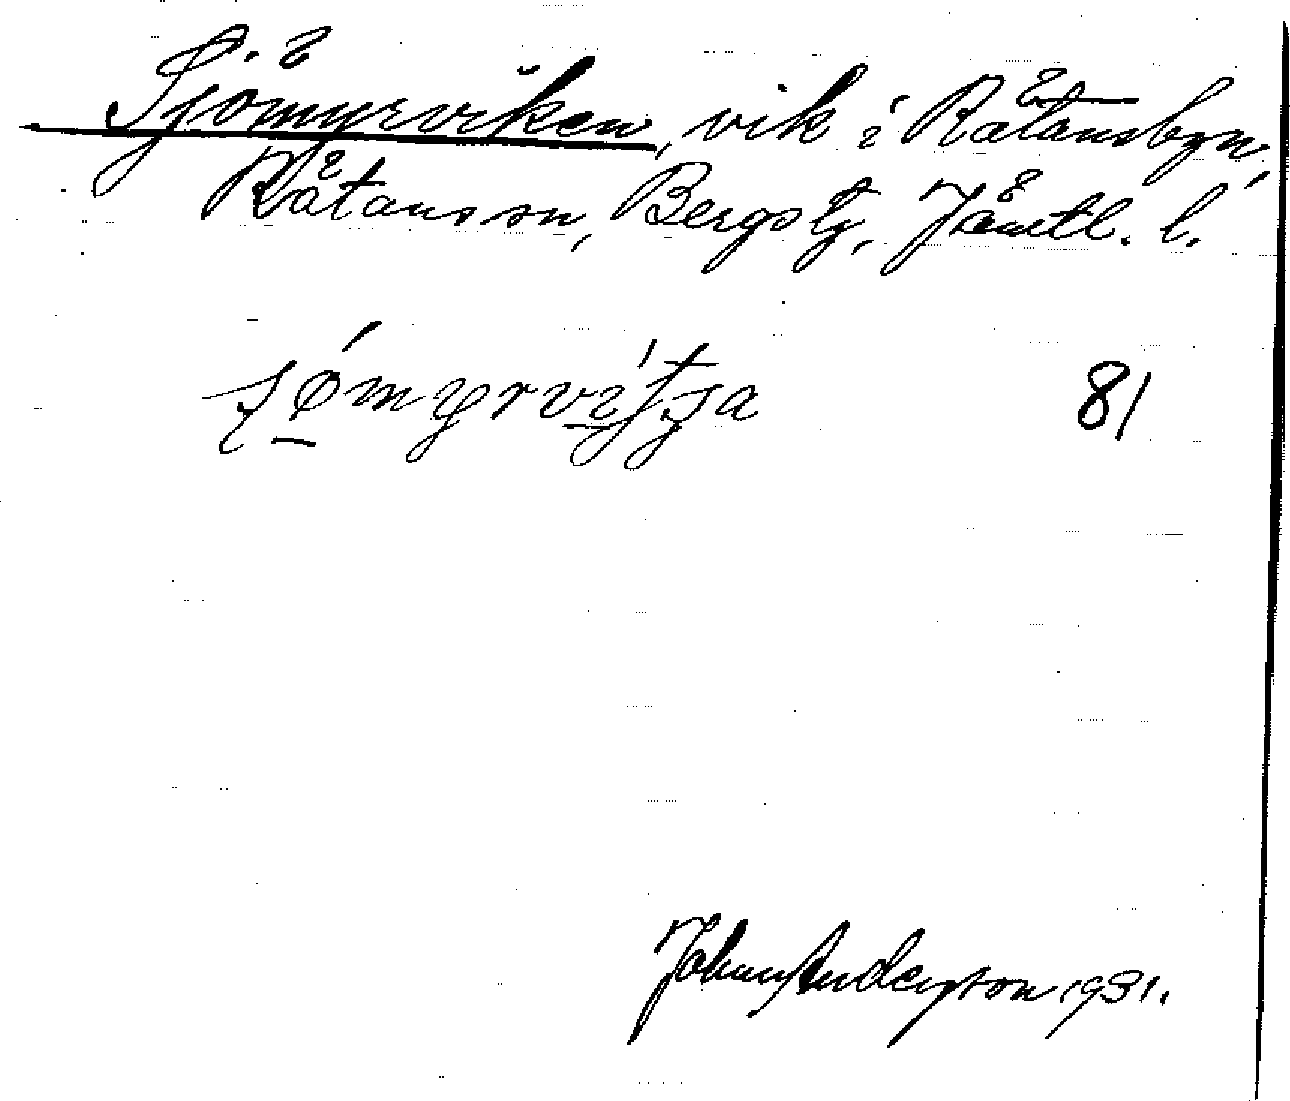 Sjömyrviken, vik i Rätansbyn,
Rätans sn, Bergs tg, Jämtl. l.
81
Johan Anderson 1931.